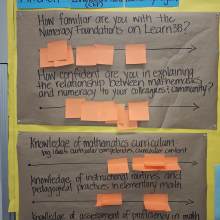 How familiar are you with the
Numeracy Foundations on Learn38?
How confident are you in explaining
the relationship between mathematics
and numeracy to your colleagues & community?
Knowledge of mathematics curriculum
Knowledge of instructional routines and
pedagogical practices in elementary math
Knowledge of assessment of proficiency in math